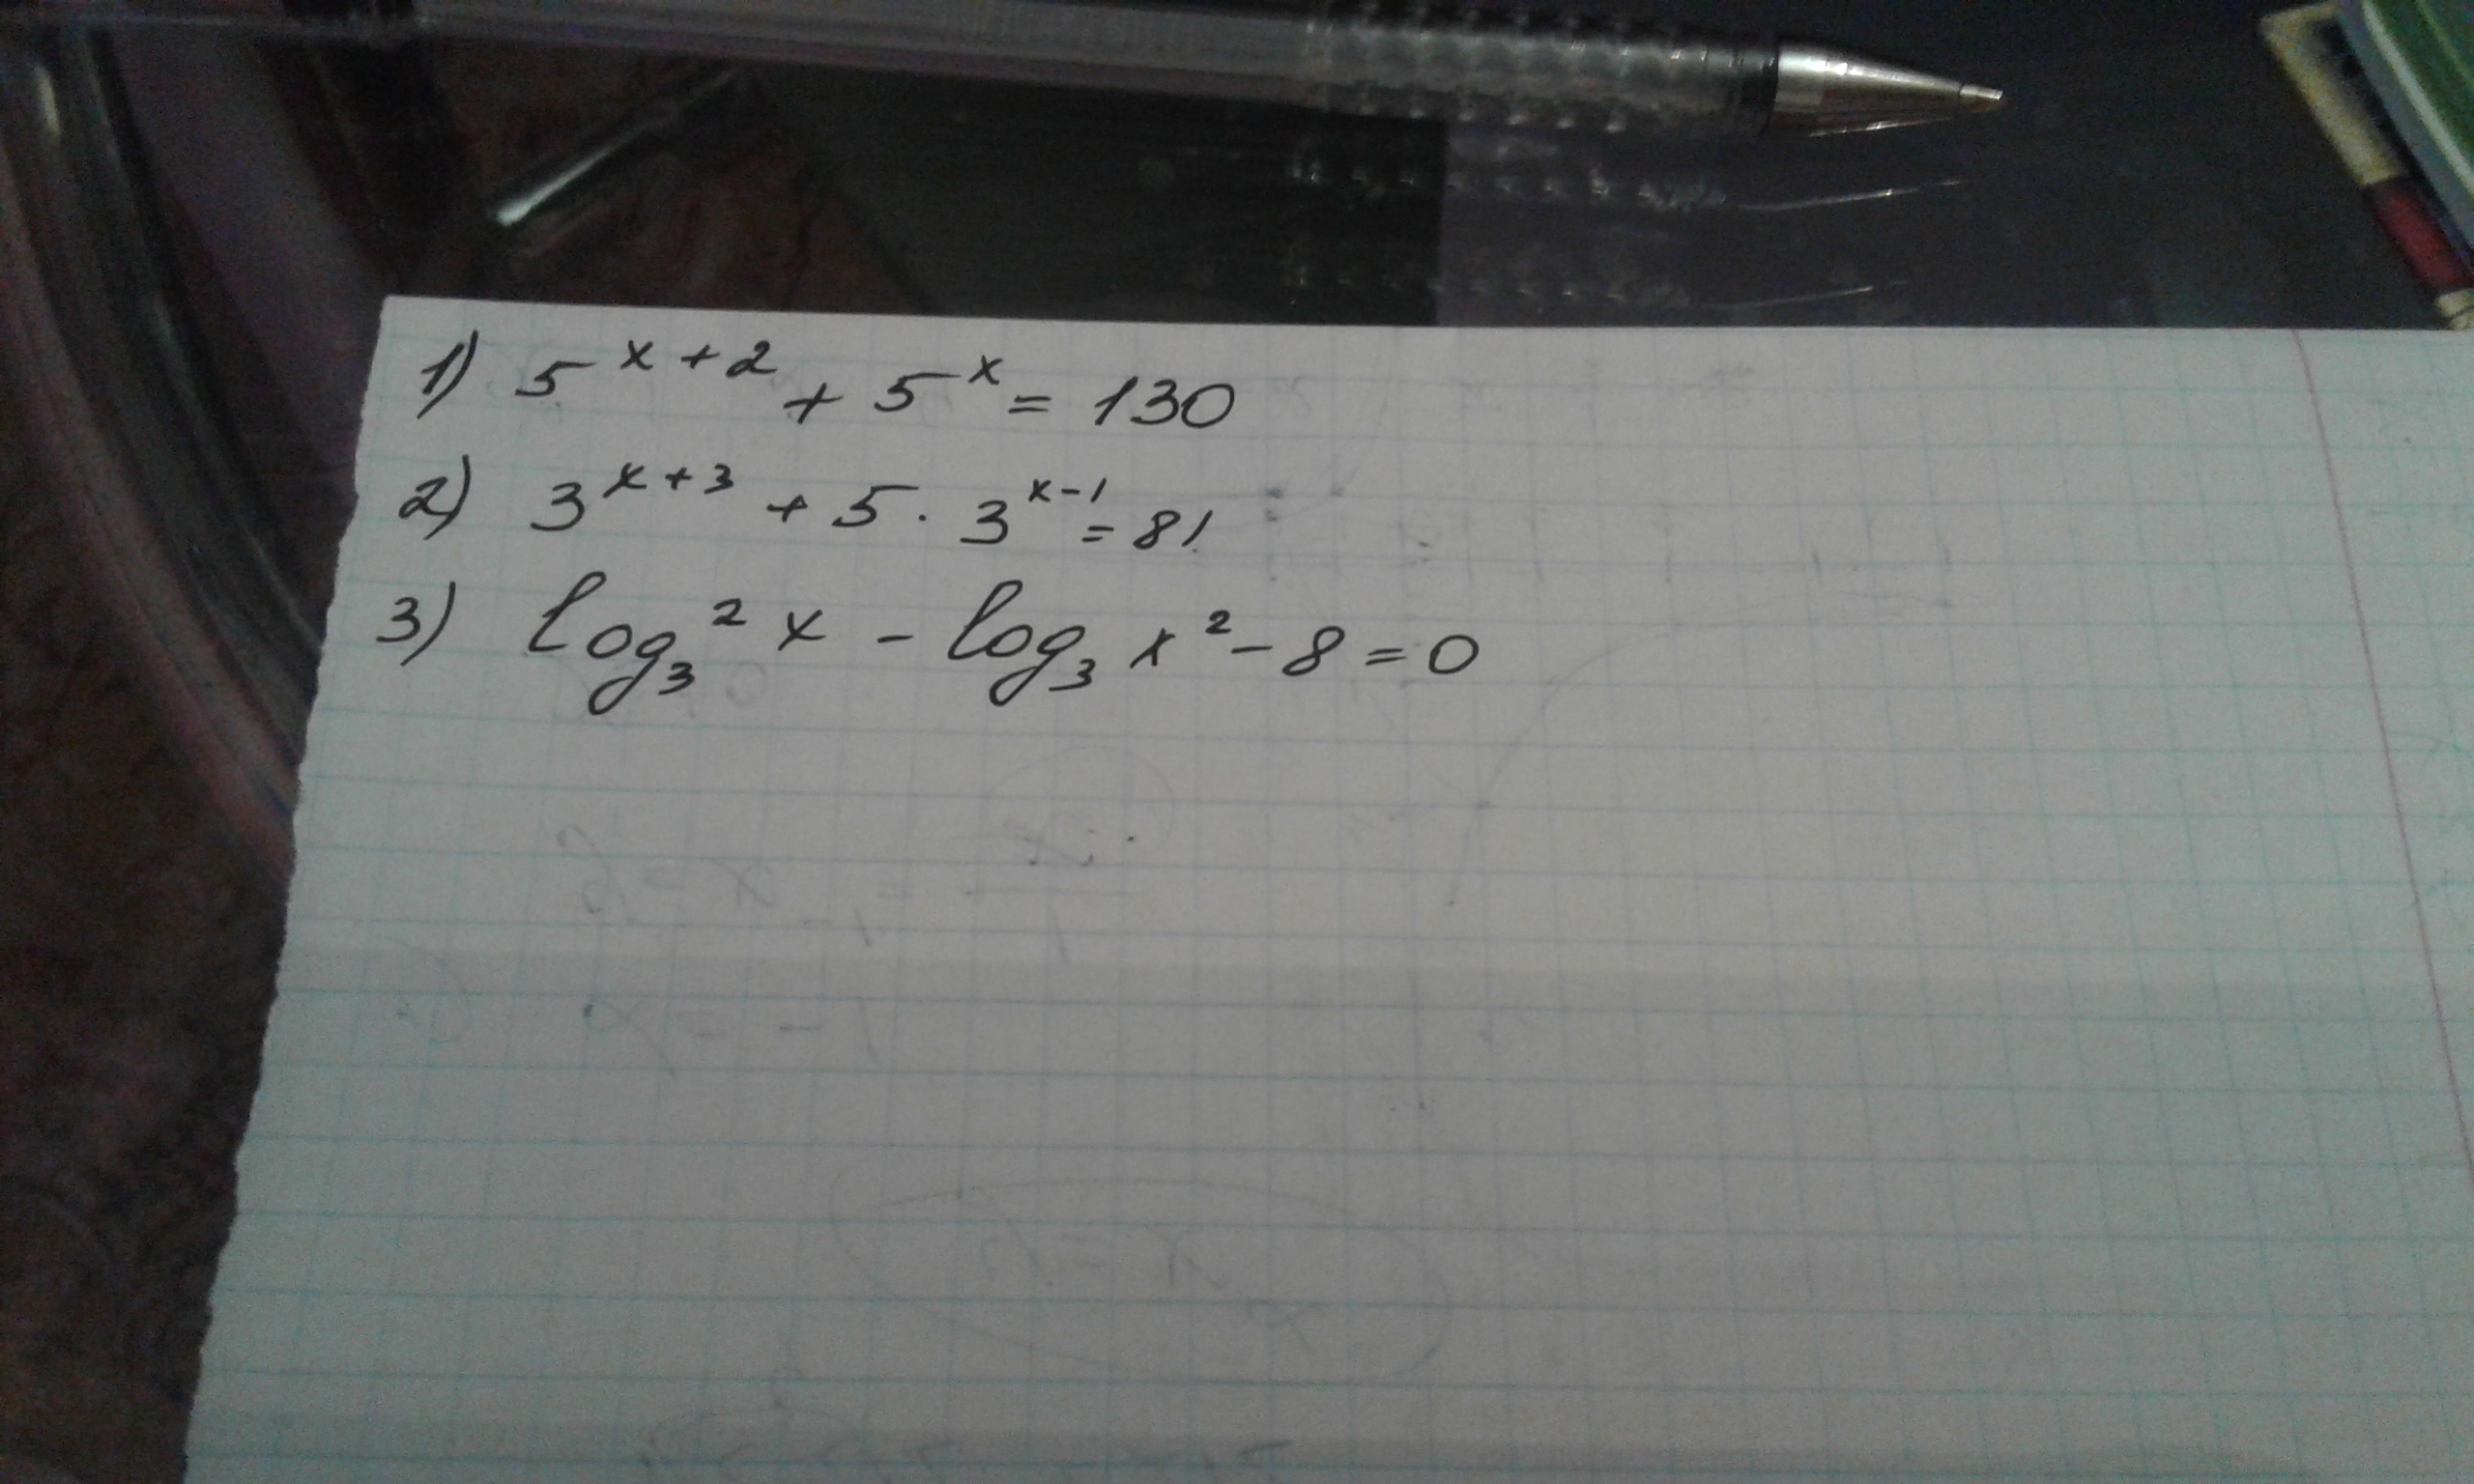 1) 5^{x+2} + 5^x = 130
2) 3^{x+3} + 5 · 3^{x-1} = 81
3) log_3^2 x - log_3 x^2 - 8 = 0